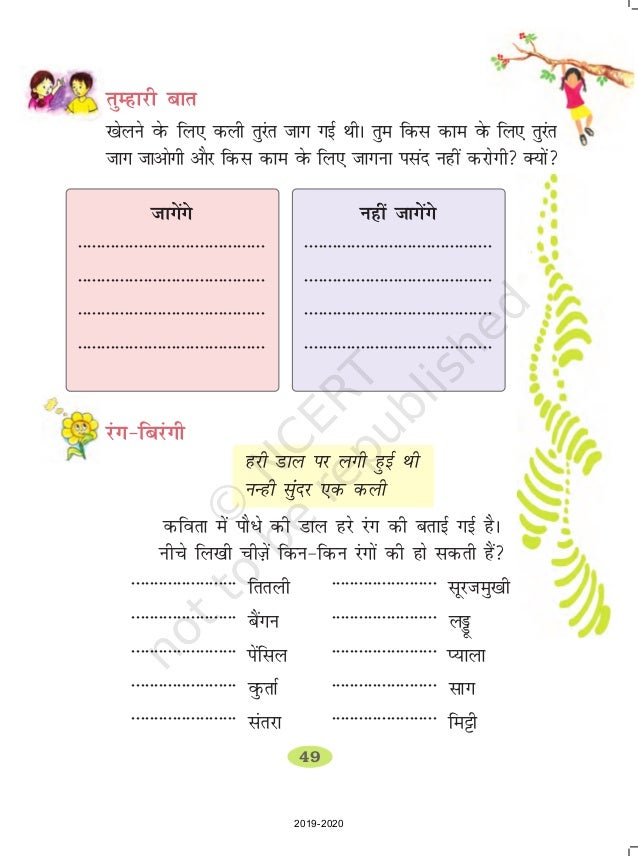 तुम्हारी बात
खेलने के लिए कली तुरंत जाग गई थी। तुम किस काम के लिए तुरंत
जाग जाओगी और किस काम के लिए जागना पसंद नहीं करोगी? क्यों?
जागेंगे
नहीं जागेंगे
रंग-बिरंगी
हरी डाल पर लगी हुई थी
नन्ही सुंदर एक कली
कविता में पौधे की डाल हरे रंग की बताई गई है।
नीचे लिखी चीज़ें किन-किन रंगों की हो सकती हैं?
........................ तितली ........................ सूरजमुखी
........................ बैंगन ........................ लड्डू
........................ पेंसिल ........................ प्याला
........................ कुर्ता ........................ साग
........................ संतरा ........................ मिट्टी
49
2019-2020
© NCERT
not to be republished